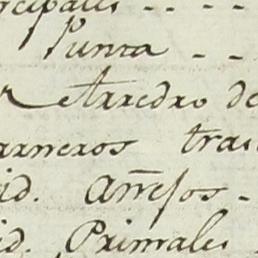 cipales - - - -
Punta - -
Retarredro de
arneros tras
id. Añejos -
id. Primales